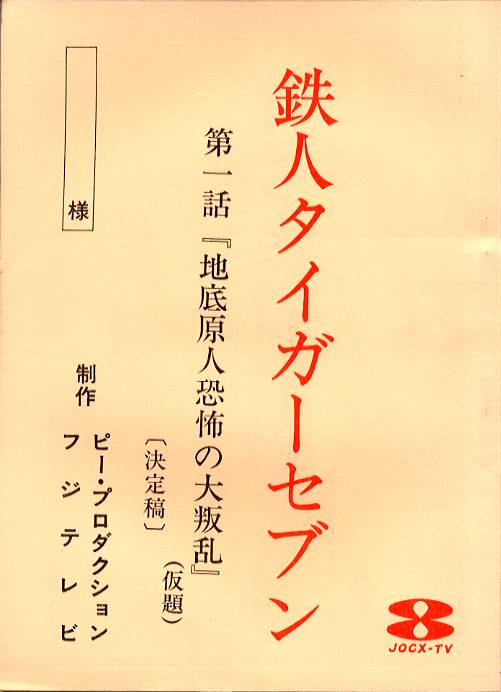 鉄人タイガーセブン
第一話『地底原人恐怖の大叛乱』
(仮題)
〔決定稿〕
制作
ピー・プロダクション
フジテレビ
様
JOCX-TV